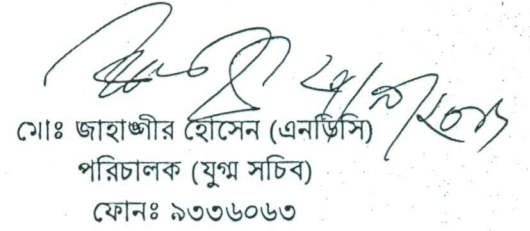 মোঃ জাহাঙ্গীর হোসেন (এনডিসি)
পরিচালক (যুগ্ম সচিব)
ফোনঃ ৯৩৩৬০৬৩